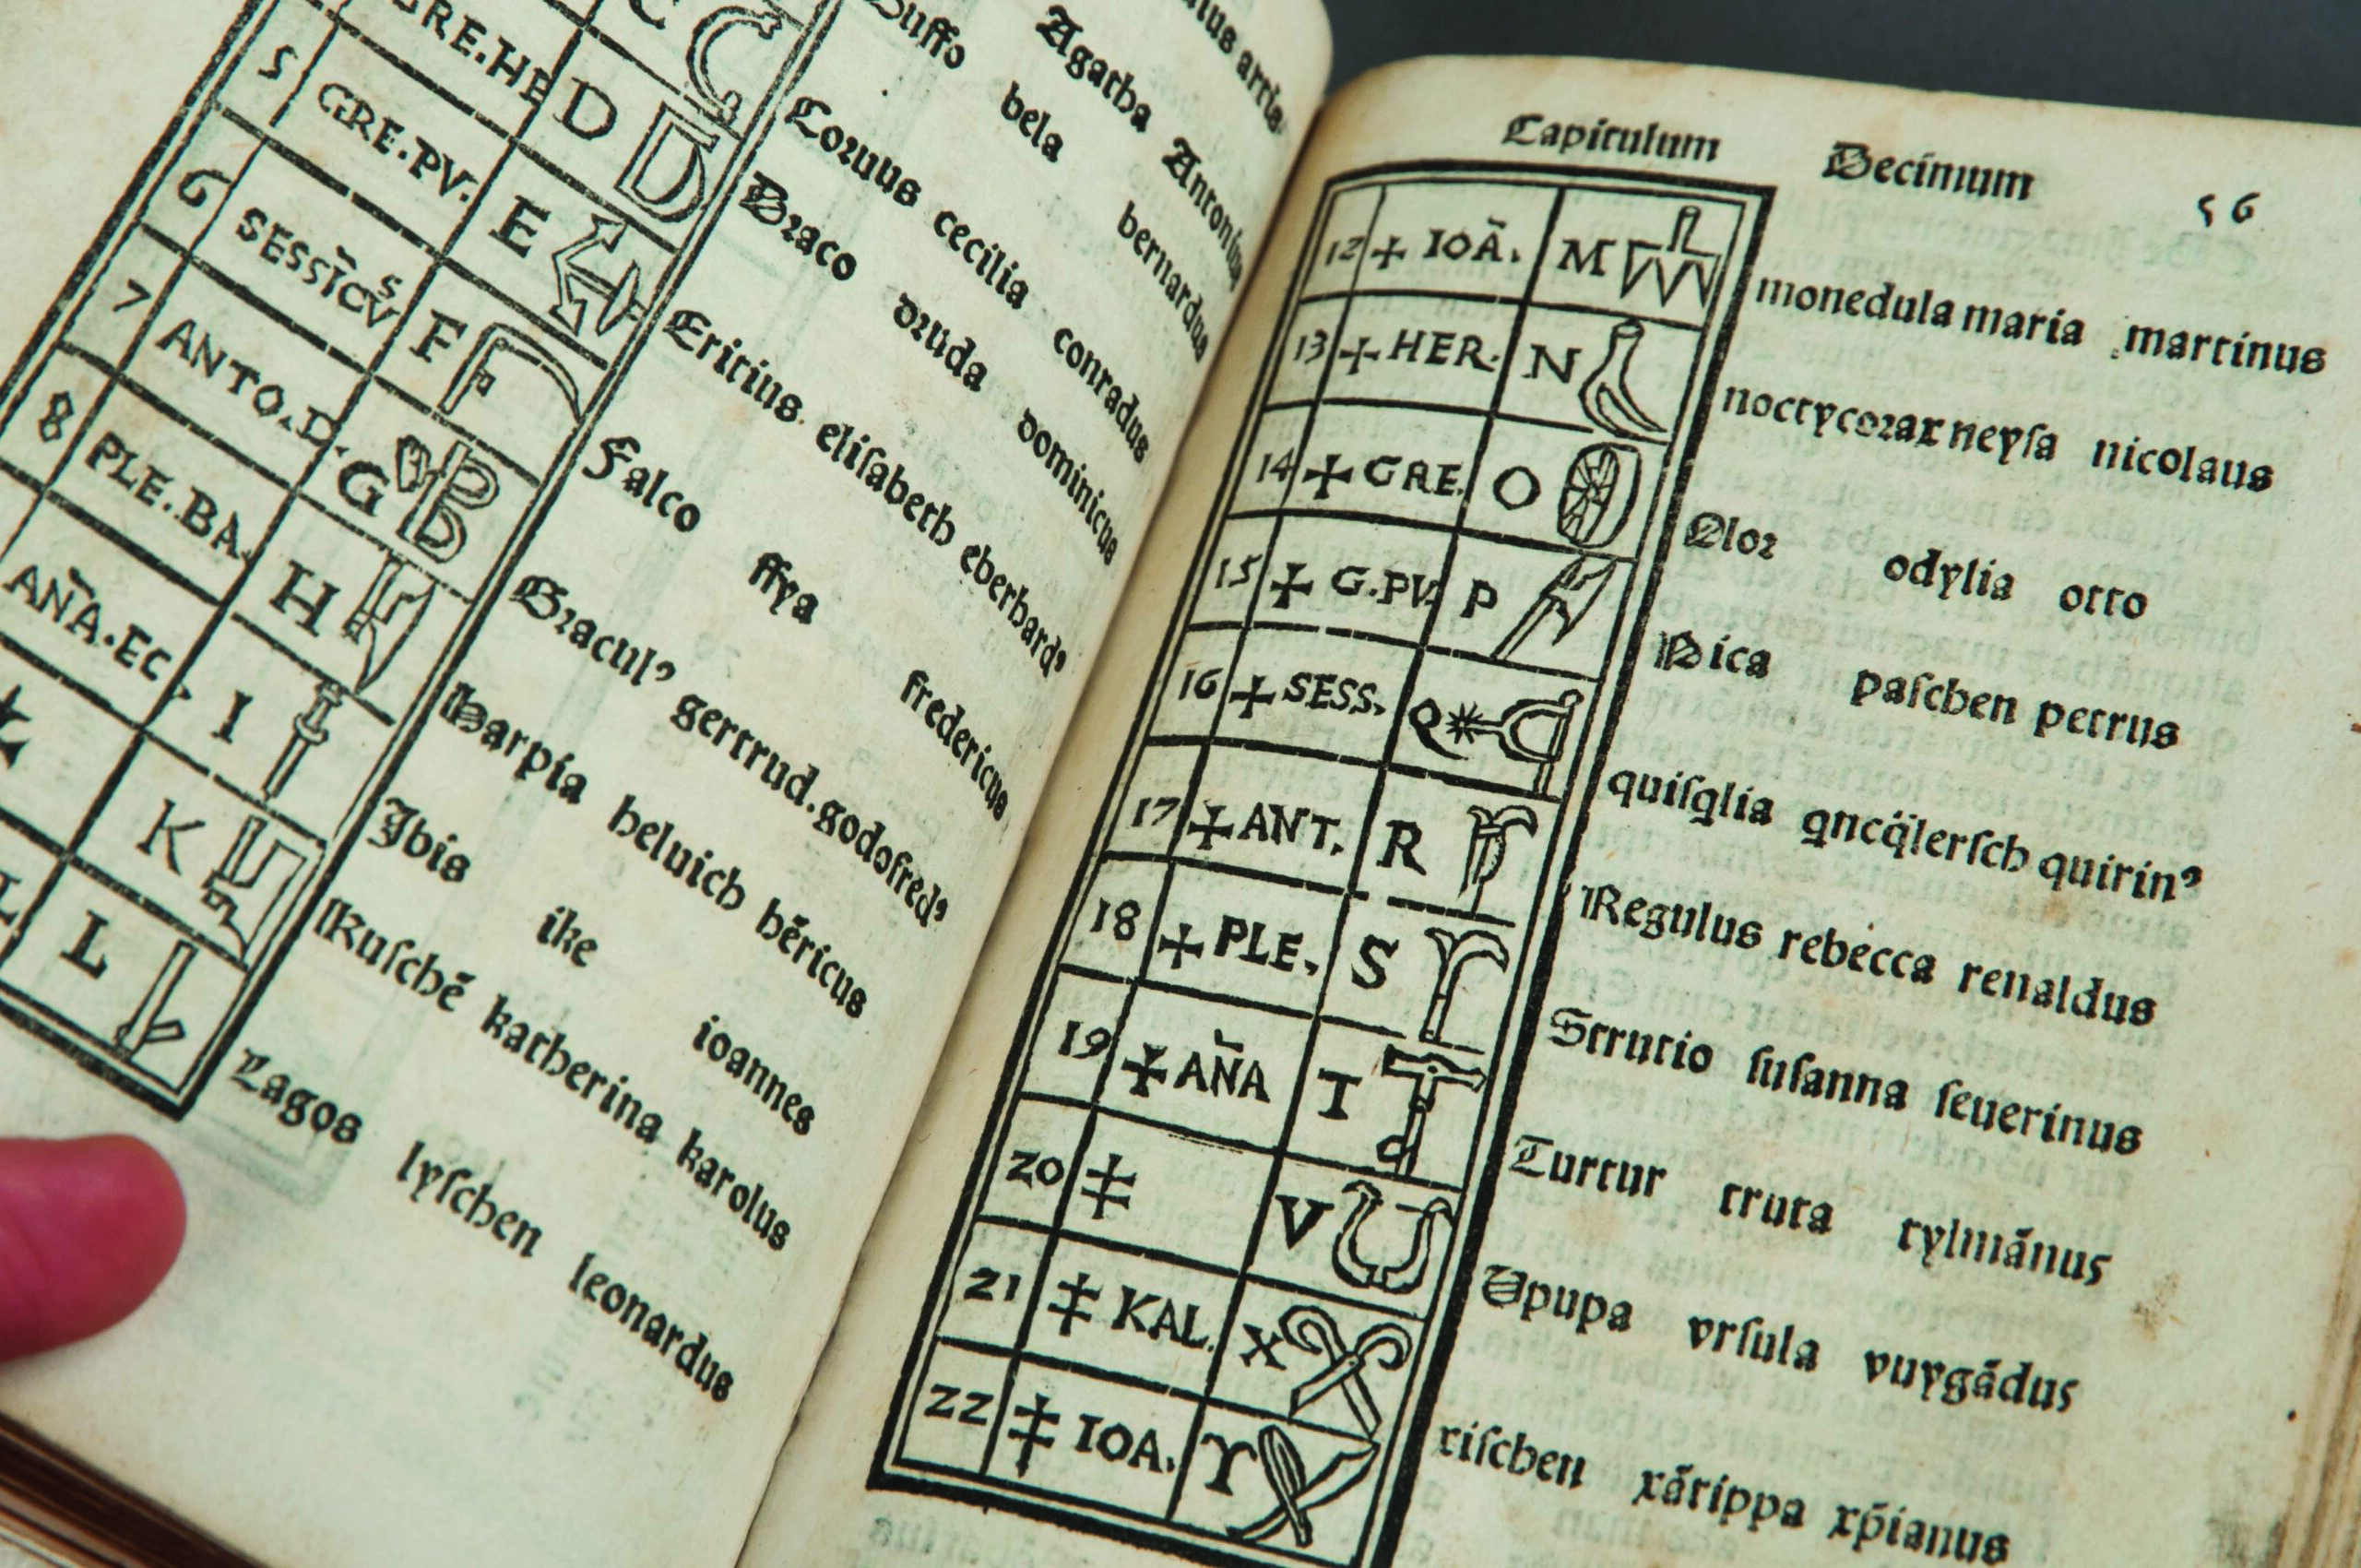 5 GRE.PV. E
6 SESSĪCVS F
7 ANTO.D. G
8 PLE.BA. H
AÑA.EC. I
K
L
D
C
Agatha Antonius
Buffo bela bernardus
Coruus cecilia conradus
Draco druda dominicus
Ericius. elisabeth eberhardꝰ
Falco ffya fredericus
Graculꝰ gertrud.godofredꝰ
Harpia heluich hēricus
Ibis ike ioannes
Kuschē katherina karolus
Lagos lyschen leonardus
Capitulum Decimum 56
12 + IOĀ. M monedula maria martinus
13 + HER. N noctycorax neysa nicolaus
14 + GRE. O Olor odylia otto
15 + G.PV. P Pica paschen petrus
16 + SESS. Q quirinꝰ
17 + ANT. R Regulus rebecca renaldus
18 + PLE. S Strutio susanna seuerinus
19 + AÑA T Turtur truta tylmānus
20 ‡ V Upupa vrsula vuygādus
21 ‡ KAL. X xischen xātippa xp̄ianus
22 ‡ IOA. Y